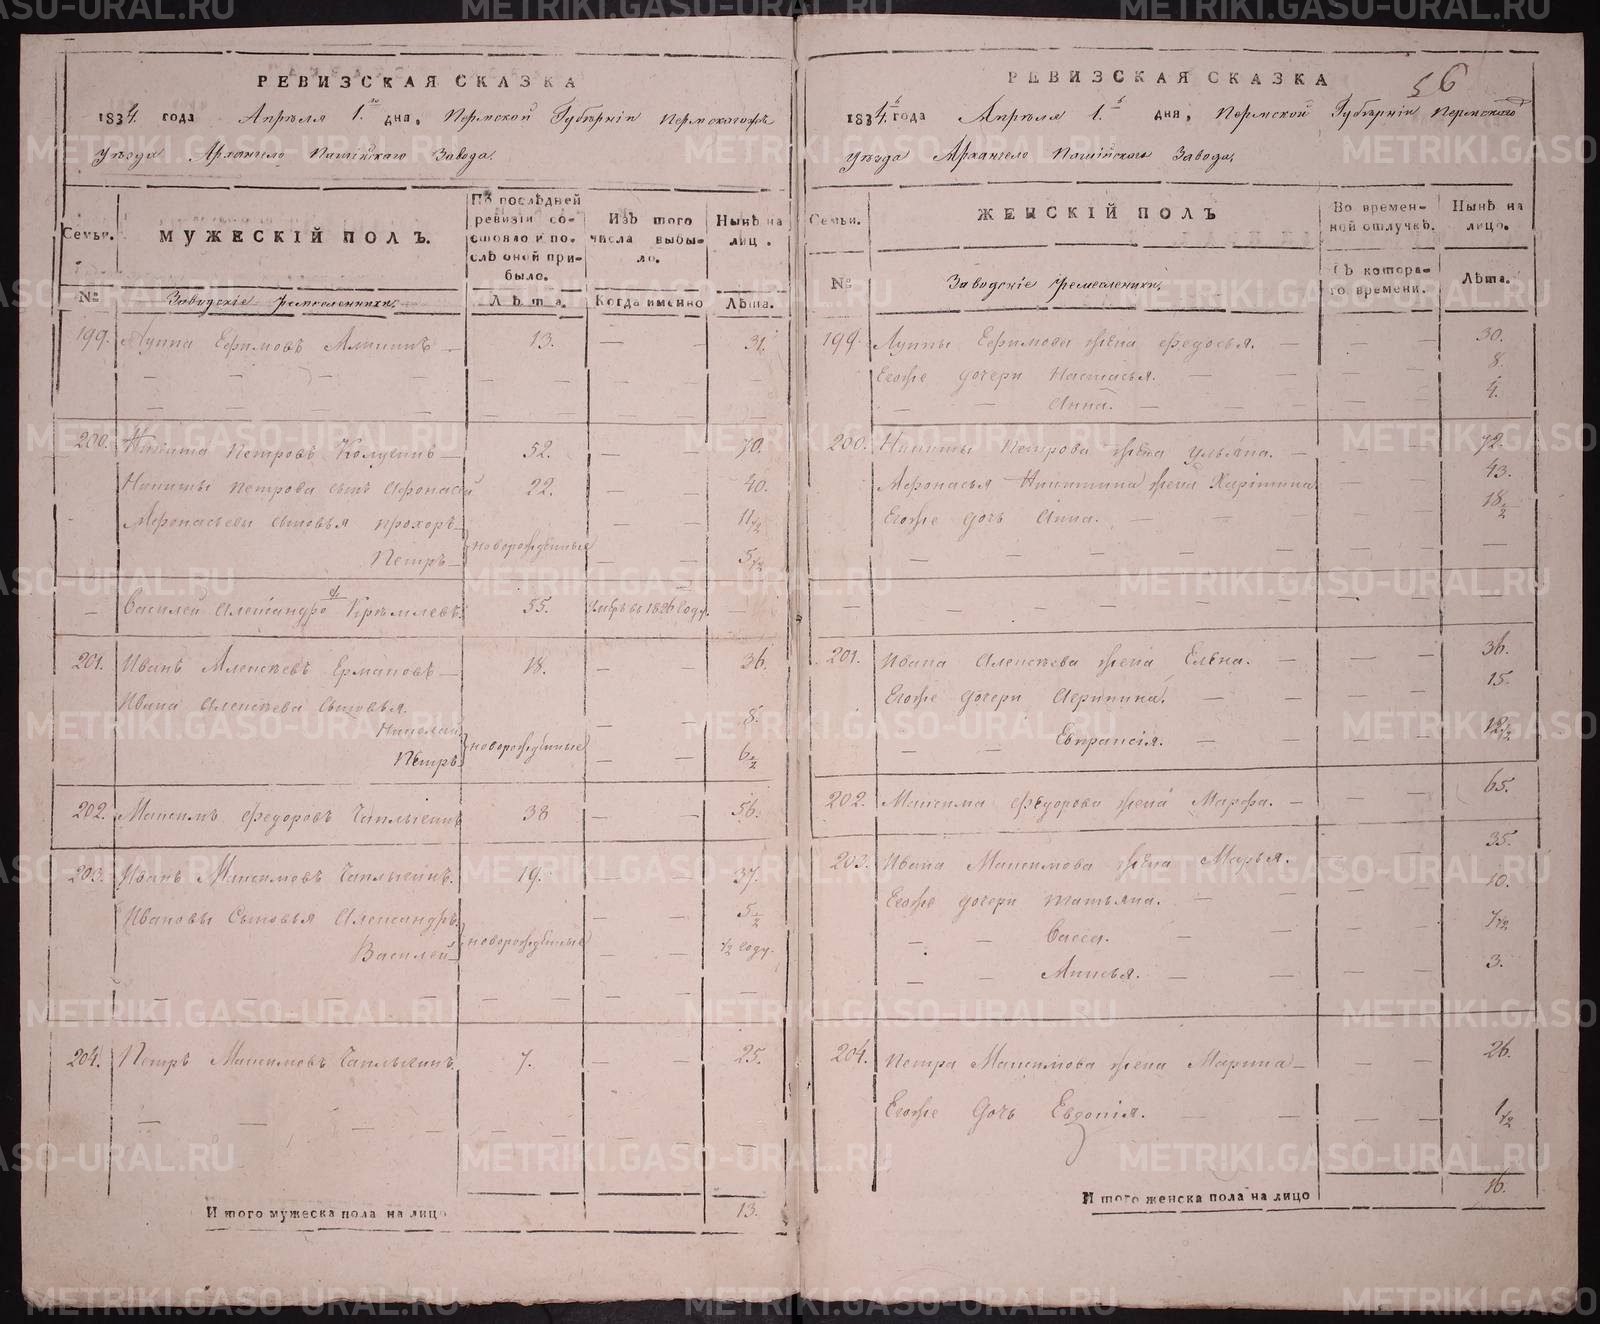 56
РЕВИЗСКАЯ СКАЗКА
1834. года Апрѣля 1. дня, Пермской Губѣрніи Пермскаго
уѣзда Архангело Пашійскаго Завода.
Семьи.
МУЖЕСКІЙ ПОЛЪ.
По послѣдней ревизіи состояло и послѣ оной прибыло.
Изъ того числа выбыло.
Нынѣ на лицо.
№
Заводскіе ремесленники.
Лѣта.
Когда именно
Лѣта.
199. Луппа Ефимовъ 13. — — 31.
200. Никита Петровъ 52. — — 70.
Никиты Петрова сынъ Афонасей 22. — — 40.
Афонасьевы сыновья Прохоръ — — 11 1/2
Петръ новорожденные 5 1/2
— Василей Александровъ 55. Умеръ въ 1826 году. —
201. Иванъ Алексѣевъ Ермаковъ 18. — — 36.
Ивана Алексѣева Сыновья.
Николай — — 8.
Петръ новорожденные — — 6 1/2
202. Максимъ Федоровъ Чаплыгинъ 38 — — 56.
203. Иванъ Максимовъ Чаплыгинъ. 19. — — 37.
Ивановы Сыновья Александръ — — 5 1/2
Василей новорожденные — — 1/2 году.
204. Петръ Максимовъ Чаплыгинъ 7. — — 25.
И того мужеска пола на лицо 13.
РЕВИЗСКАЯ СКАЗКА
1834. года Апрѣля 1. дня, Пермской Губѣрніи Пермскаго
уѣзда Архангело Пашійскаго Завода.
Семьи.
ЖЕНСКІЙ ПОЛЪ
Во временной отлучкѣ.
Нынѣ на лицо.
№
Заводскіе ремесленики.
Съ котораго времени.
Лѣта.
199. Луппы Ефимова жена Федосья. — — — 30.
Егоже дочери Настасья. — — — 8.
— — Анна. — — — 4.
200. Никиты Петрова жена Ульяна. — — — 72.
Афонасья Никитина жена Харитина — — 43.
Егоже дочь Анна. — — — 18 1/2
201. Ивана Алексѣева жена Елѣна. — — — 36.
Егоже дочери Агрипина. — — — 15.
— — Евпраксія. — — — 12 1/2
202. Максима Федорова жена Марфа. — — — 65.
203. Ивана Максимова жена Марья. — 35.
Егоже дочери Татьяна. — — — 10.
— — Васса. — — — 7 1/2
— — Анисья. — — — 3.
204. Петра Максимова жена Марина — — — 26.
Егоже Дочь Евдокія. — — — 1 1/2
И того женска пола на лицо 16.